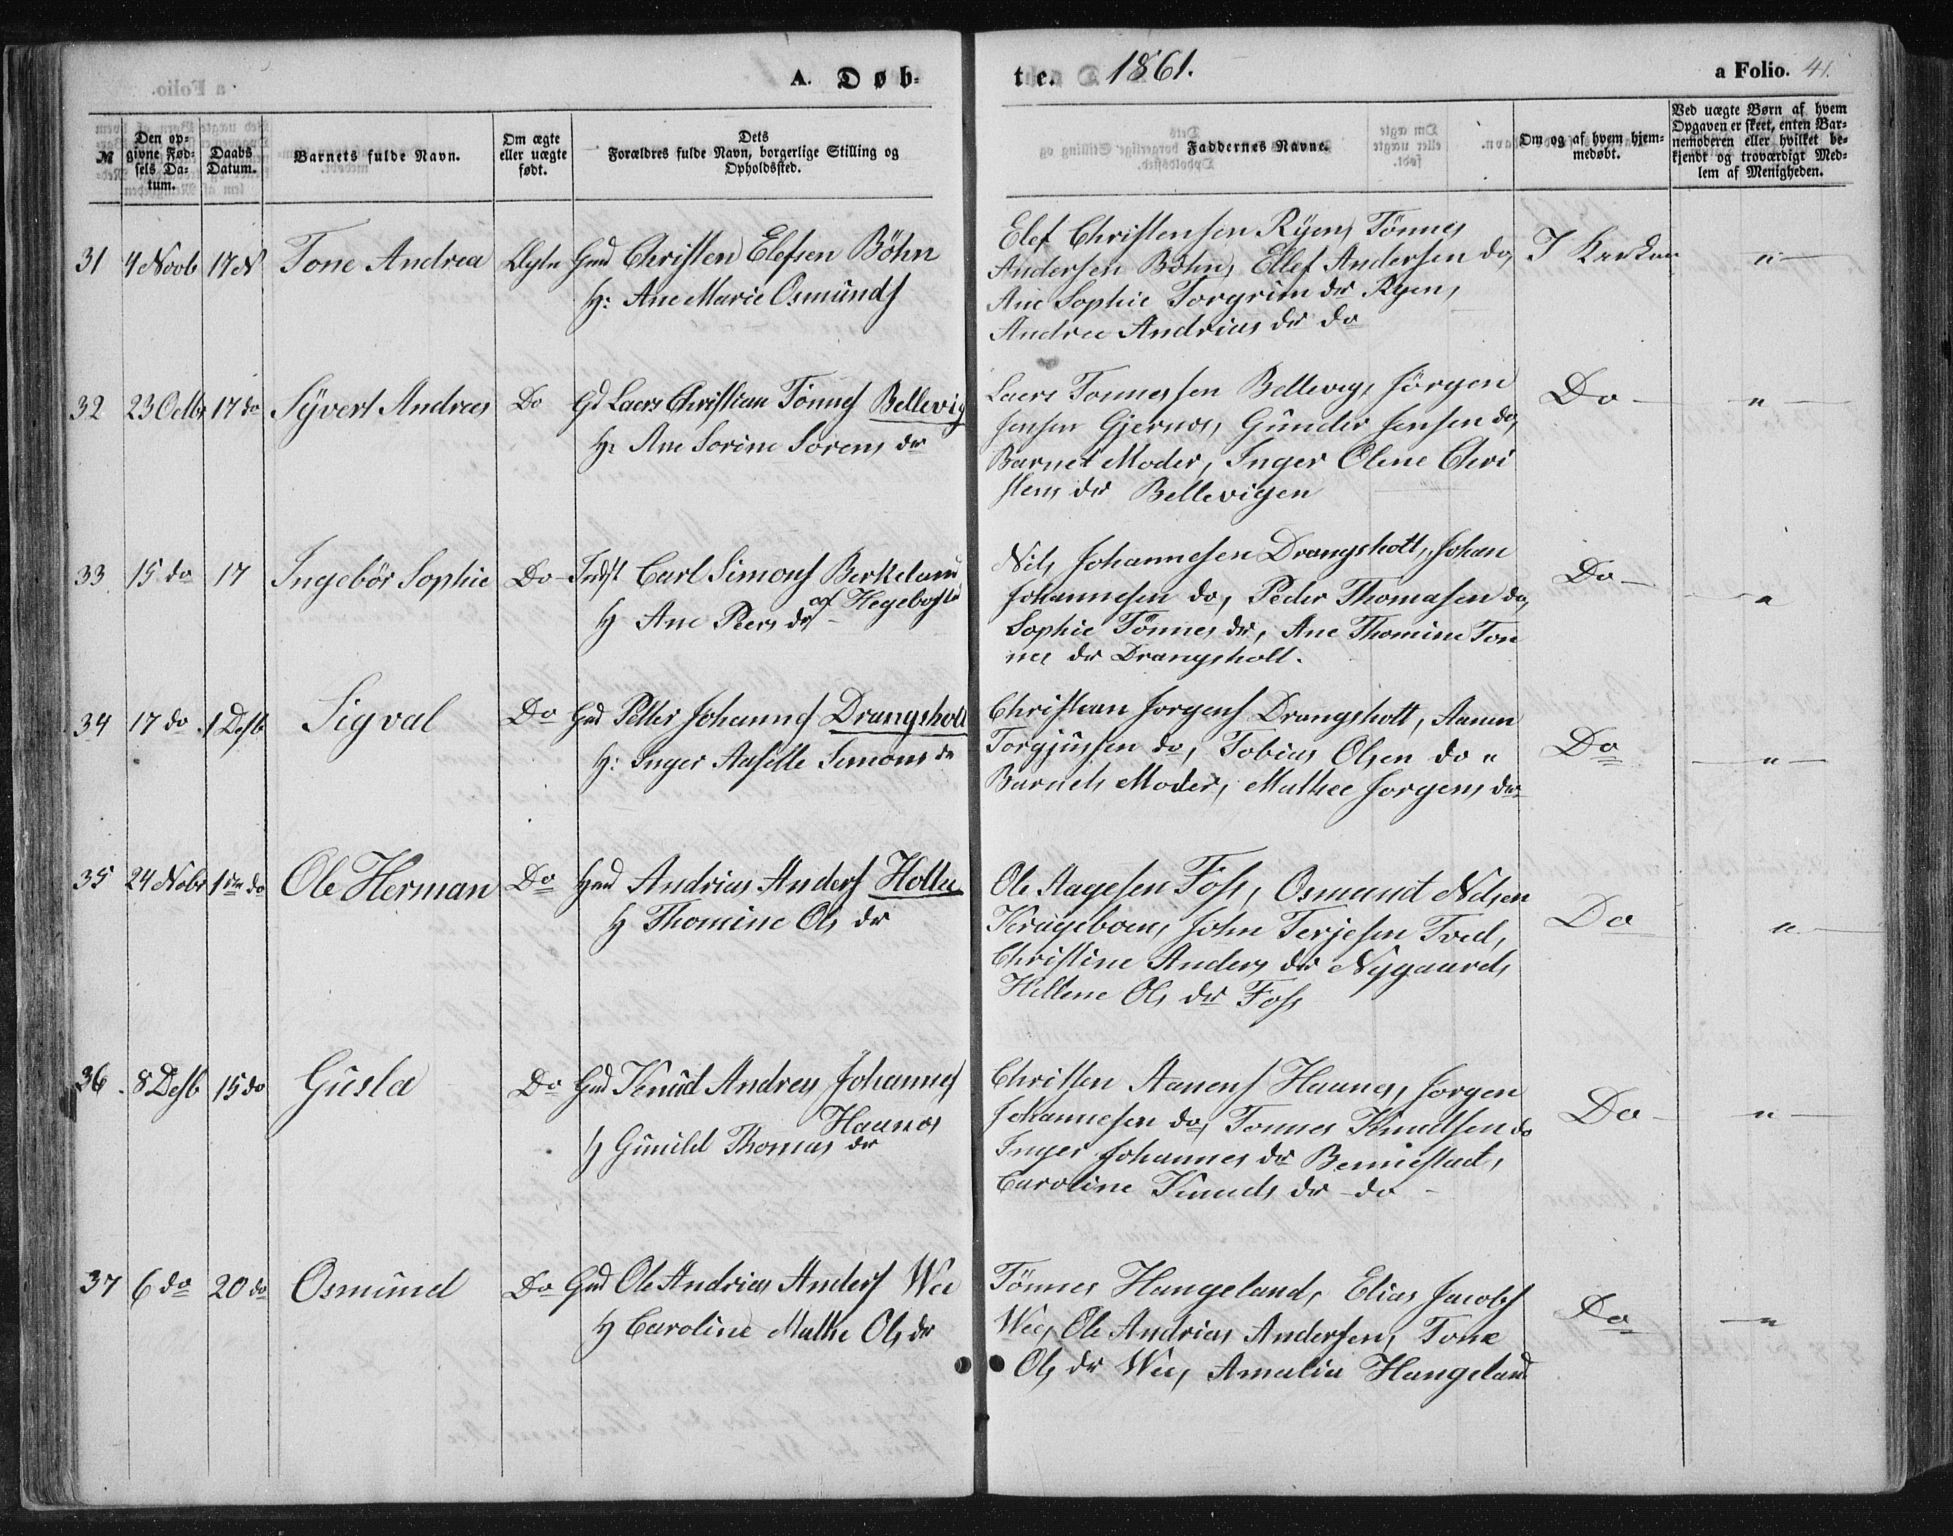 A. Døb-
te. 1861.
a Folio. 41.
№
Den op-
givne Fød-
sels Da-
tum.
Daabs
Datum.
Barnets fulde Navn.
Om ægte
eller uægte
født.
Dets
Forældres fulde Navn, borgerlige Stilling og
Opholdssted.
Faddernes Navne.
Om og af hvem hjem-
medøbt.
Ved uægte Børn af hvem
Opgaven er skeet, enten Bar-
nemoderen eller hvilket be-
kjendt og troværdigt Med-
lem af Menigheden.
31 4 Novb 17 N Tone Andrea Ægte Gmd Christen Elefsen Böhn
H: Ane Marie Osmunds
Elef Christensen Ryen, Tönnes
Andersen Böhn, Ellef Andersen do,
Ane Sophie Torgrim dr Ryen,
Andrea Andrias dr do
I Kirken "
32 23 Octbr 17 do Syvert Andreas Do Gd Laers Christian Tönnes Bellevig
H: Ane Sorine Sorens dr
Laers Tonnessen Bellevig, Jörgen
Jensen Gjernes, Gunder Jensen do,
Barnet Moder, Inger Olene Chri
stens dr Bellevigen
Do "
33 15 do 17 Ingebör Sophie Do Indst Carl Simons Birkeland
af Hegebostd
H Ane Peers dr
Nils Johannesen Drangsholt, Johan
Johannesen do, Peder Thomasen do,
Sophie Tönnes dr, Ane Thomine Ton
nes dr Drangsholt.
Do "
34 17 do 1 Desb Sigval Do Gmd Petter Johannes Drangsholt
H: Inger Aaselle Simons dr
Christian Jorgens Drangsholt, Aanen
Torgjussen do, Tobias Olsen do "
Barnets Moder, Mathea Jorgens dr
Do "
35 24 Nobr 1ste do Ole Herman Do Hmd Andrias Anders Holte
H Thomine Ols dr
Ole Aagesen Foss, Osmund Nilsen
Krageboen, John Terjesen Tved,
Christine Anders dr Nygaard,
Hellene Ols dr Foss
Do "
36 8 Desb 15 do Gusta Do Gmd Knud Andreas Johannes
Haanes
H Gunild Thomas dr
Christen Aanens Haanes, Jorgen
Johannesen do, Tonnes Knudsen do
Inger Johannes dr Benniestad,
Caroline Knuds dr do
Do "
37 6 do 20 do Osmund Do Gmd Ole Andrias Anders Wee
H Caroline Mathe Ols dr
Tönnes Hangeland, Elias Jacobs
Wee, Ole Andrias Andersen, Tone
Ols dr Wee, Amalia Hangeland
Do "